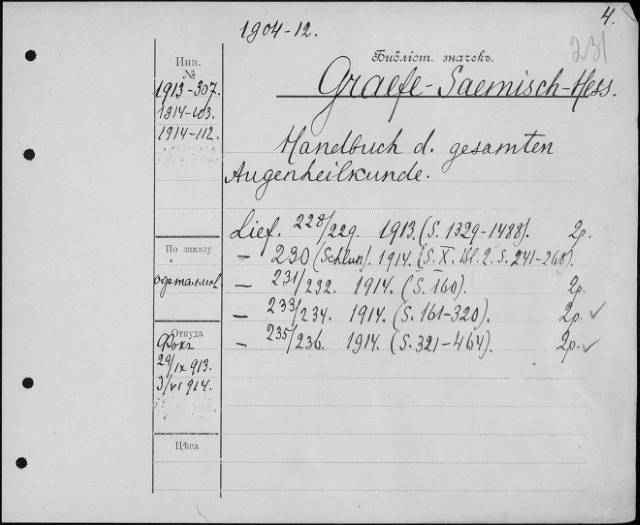 4.
1904-12.
231
Инв.
№
Библіот. значекъ.
1913-307.
1914-103.
1914-112.
Graefe-Saemisch-Hess.
Handbuch d. gesamten
Augenheilkunde.
Lief. 228/229. 1913. (S. 1329-1488). 2р.
— 230 (Schluss). 1914. (S. X. Bd. 2. S. 241-268).
— 231/232. 1914. (S. 160). 2р.
— 233/234. 1914. (S. 161-320). 2р. ✓
— 235/236. 1914. (S. 321-464). 2р. ✓
По заказу
Откуда
29/IX 913.
3/VI 914.
Цѣна